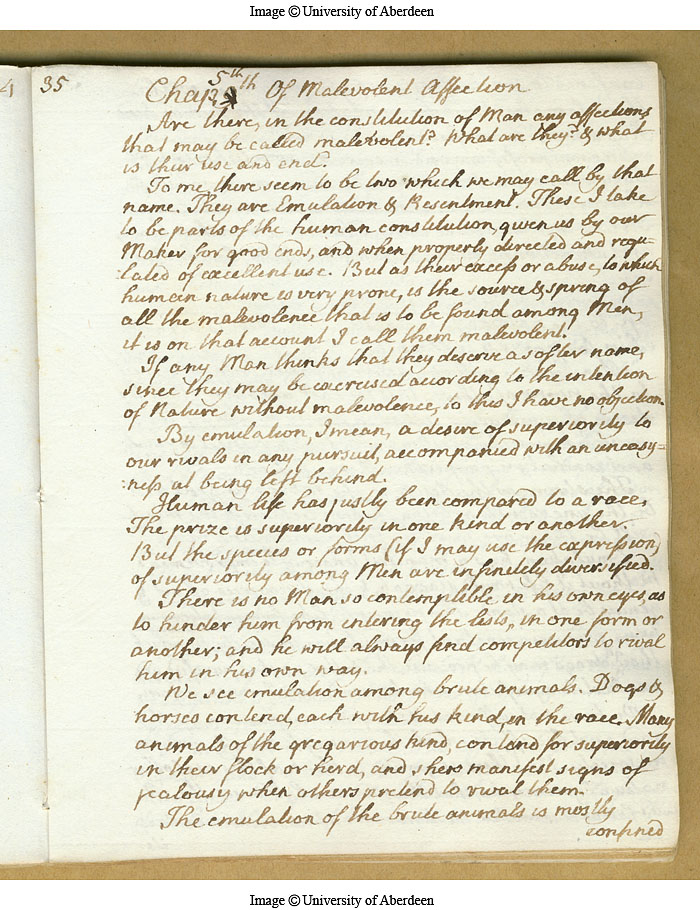 Image © University of Aberdeen
35
Chap 5th th Of Malevolent Affection
Are there, in the constitution of Man any affections
that may be called malevolent? What are they? & what
is their use and end?
To me there seem to be two which we may call by that
name. They are Emulation & Resentment. These I take
to be parts of the human constitution, given us by our
Maker for good ends, and when properly directed and regu-
:lated of excellent use. But as their excess or abuse, to which
human nature is very prone, is the source & spring of
all the malevolence that is to be found among Men,
it is on that account I call them malevolent.
If any Man thinks that they deserve a softer name,
since they may be exercised according to the intention
of Nature without malevolence, to this I have no objection.
By emulation, I mean, a desire of superiority to
our rivals in any pursuit, accompanied with an uneasy=
:ness at being left behind.
Human life has justly been compared to a race,
The prize is superiority in one kind or another.
But the species or forms (if I may use the expression)
of superiority among Men are infinitely diversified.
There is no Man so contemptible in his own eyes, as
to hinder him from entering the lists, in one form or
another; and he will always find competitors to rival
him in his own way.
We see emulation among brute animals. Dogs &
horses contend, each with his kind, in the race. Many
animals of the gregarious kind, contend for superiority
in their flock or herd, and shew manifest signs of
jealousy when others pretend to rival them.
The emulation of the brute animals is mostly
confined
Image © University of Aberdeen